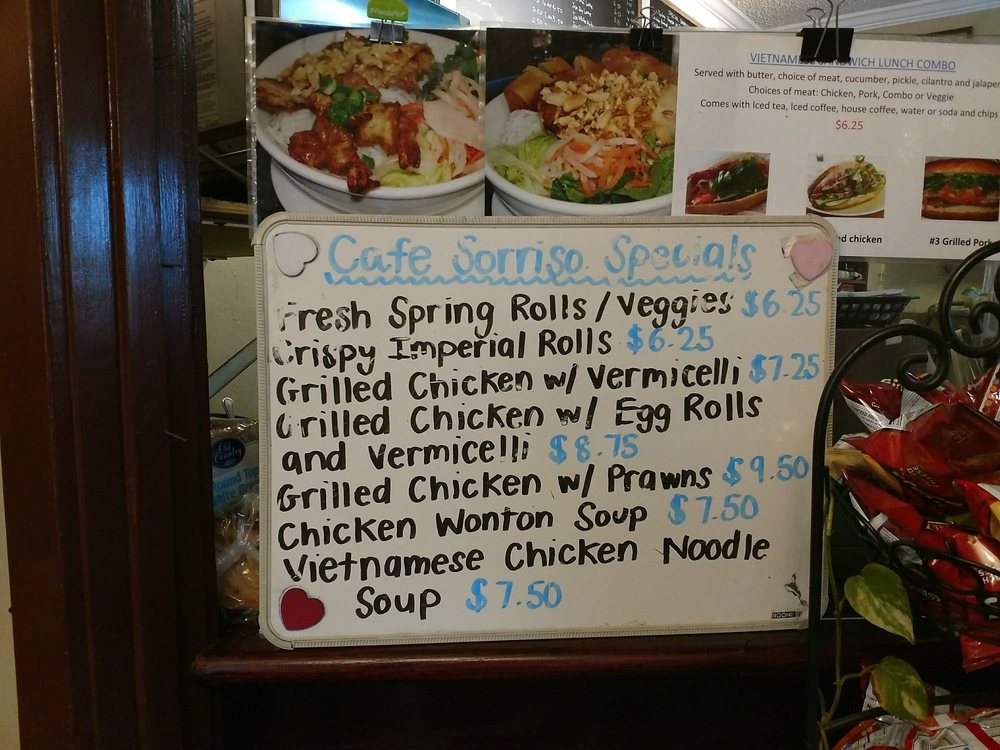 VIETNAMESE SANDWICH LUNCH COMBO
Served with butter, choice of meat, cucumber, pickle, cilantro and jalape
Choices of meat: Chicken, Pork, Combo or Veggie
Comes with Iced tea, Iced coffee, house coffee, water or soda and chips
$6.25
ed chicken
#3 Grilled Pork
Cafe Sorriso Specials
Fresh Spring Rolls / Veggies $6.25
Crispy Imperial Rolls $6.25
Grilled Chicken w/ Vermicelli $7.25
Grilled Chicken w/ Egg Rolls
and Vermicelli $8.75
Grilled Chicken w/ Prawns $9.50
Chicken Wonton Soup $7.50
Vietnamese Chicken Noodle
Soup $7.50
BOONE
Old
Country